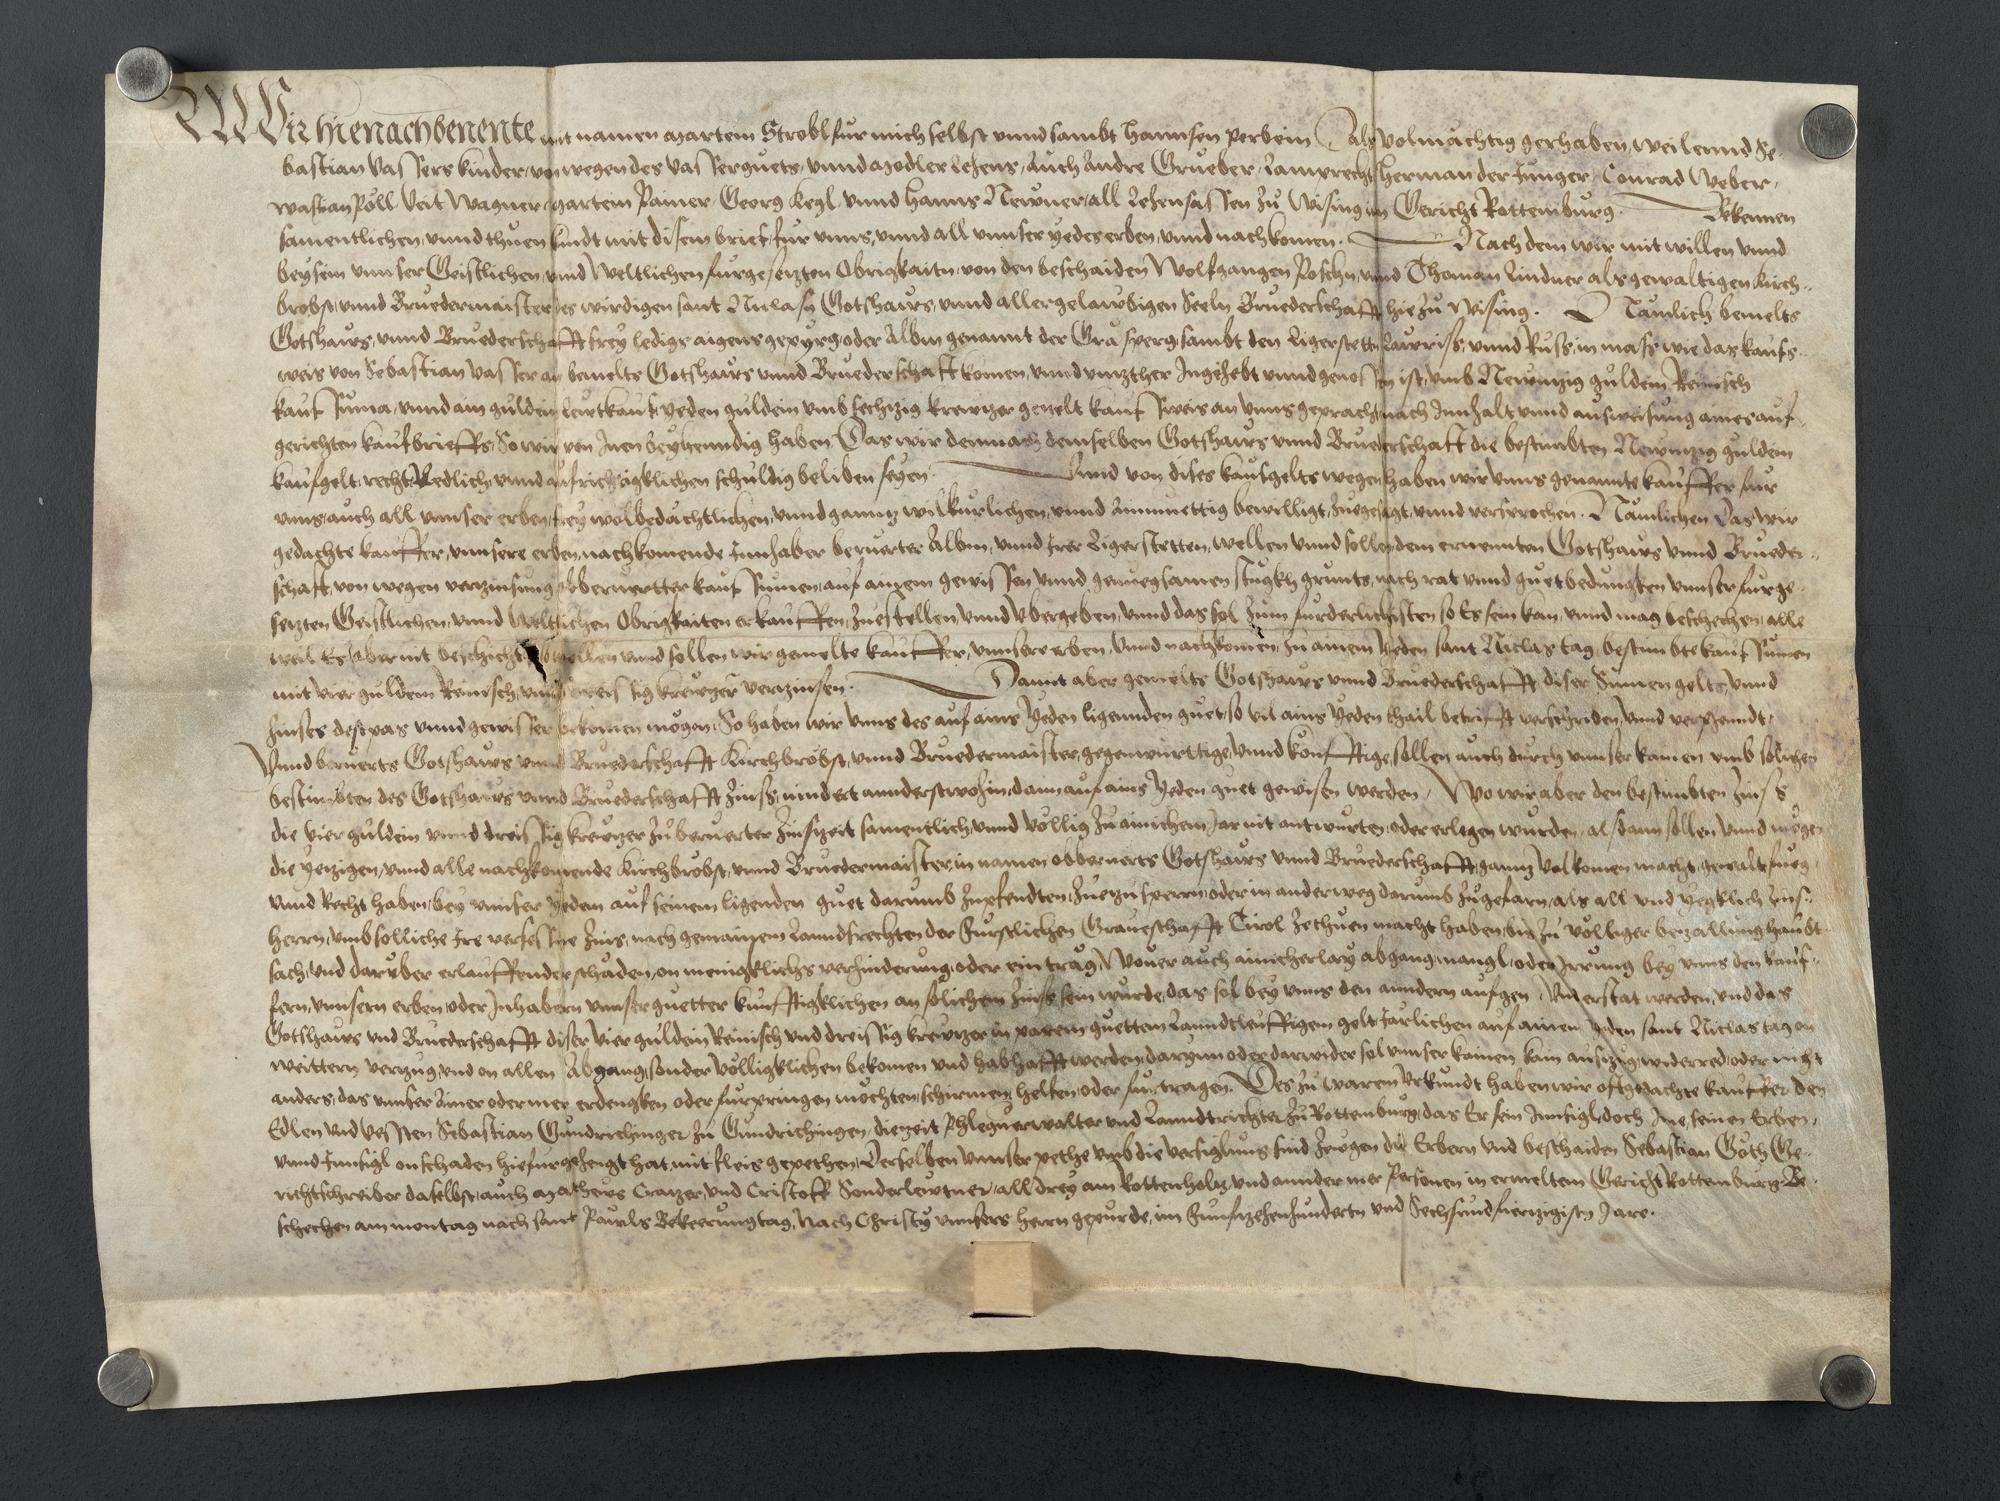 Wir hienachbenente mit namen Martein Strobl fur mich selbst vnnd sambt Hannsen Perbein Als volmächtig gerhaben, weilennd Se-
bastian Vassers kinder, von wegen des Vasserguets, vnnd Modler Lehens, Auch Andre Grueber, Lamprecht Herman der Junger, Conrad Weber,
Wastian Pöll Veit Wagner, Martein Rainer Georg Kegl vnnd Hanns Newner, all Lehensässen zu Wising in Gericht Rottemburg. Bekennen
samentlichen, vnnd thuen kundt mit disem brief, fur vnns, vnnd all vnnser yedes erben, vnnd nachkomen. Nach dem wir mit willen vnnd
beysein vnnser Geistlichen, vnnd Weltlichen furgesetzten Obrigkaitn, von den beschaiden Wolfganngen Poschn, vnnd Thoman Lindner als gewaltigen Kirch-
brobst, vnnd Bruedermaister des wirdigen sant Niclasn Gotshaws, vnnd aller gelawbigen Seeln Bruederschafft hie zu Wising. Nämlich bemelts
Gotshaws, vnnd Bruederschafft frey ledigs aigens gepyrg oder Albm genannt der Grasperg sambt den Ligerstetten, vnnd in mass wie das kaufs-
weis von Sebastian Vasser an bemelts Gotshaws vnnd Bruederschafft komen, vnnd vnnzther Ingehebt vnnd genossen ist, vmb Newnzig guldein Reinisch
kauf Suma, vnnd ain guldein Leitkauf, yeden guldein vmb sechtzig krewtzer gezelt kaufsweis an vnns gepracht, nach Innhalt vnnd ausweisung aines auf-
gerichten kaufbrieffs, So wir von Inen beyhenndig haben Das wir demnach demselben Gotshaws vnnd Bruederschafft die bestimbten Newntzig guldein
kaufgelt, recht, Redlich, vnnd aufrichtigklichen schuldig beliben seyen. Vnnd von dises kaufgelts wegen haben wir vnns genannte kauffer fur
vnns, auch all vnnser erben, frey wolbedächtlichen, vnnd ganntz wilkurlichen, vnnd ainmuettig bewilligt, zuegesagt, vnnd versprochen. Nämlichen das wir
gedachte kauffer, vnnsere erben, nachkomende Innhaber beruerter Albm, vnnd Irer Ligerstetten, wellen vnnd sollen dem ernennten Gotshaws vnnd Brueder-
schaft, von wegen verzinsung obberuertter kauf Sumen, auf ainem gewissen vnnd genuegsamen stugkh grunts, nach rat vnnd guetbedungken vnnser furge-
setzten Geistlichen, vnnd Weltlichen Obrigkaiten erkauffen, zuestellen, vnnd vbergeben, vnnd das sol zum furderlichisten so Es sein kan, vnnd mag beschechen, alle
weil Es aber nit beschicht, wellen vnnd sollen wir gemelte kauffer, vnnsere erben, vnnd nachkomen, zu ainem yeden sant Niclas tag, bestimbte kauf Sumen
mit vier guldein Reinisch, vnnd dreissig krewtzer vertzinsen. Damit aber gemelts Gotshaws vnnd Bruederschafft diser Sumen gelts, vnnd
zinses dest pas vnnd gewisser bekomen mögen, So haben wir vnns des auf ains yeden ligennden guet, so vil ains yeden thail betrifft verschriben, vnnd verphenndt,
Vnnd beruerts Gotshaws vnnd Bruederschafft Kirchbröbst, vnnd Bruedermaister, gegenwurttige, vnnd konfftige, sollen auch durch vnnser kainen vmb solichen
bestimbten des Gotshaws vnnd Bruederschafft zinss, nindert annderstwohin, dann auf ains yeden guet gewisen werden, Wo wir aber den bestimbten zinss
die vier guldein vnnd dreissig krewtzer zu beruerter Zinszeit samentlich, vnnd völlig zu ainichem Jar nit antwurten, oder erlegen wurden, alsdann sollen, vnnd mögen
die yetzigen, vnnd alle nachkomende Kirchbröbst, vnnd Bruedermaister, in namen obberuerts Gotshaws vnnd Bruederschafft, ganntz volkomen macht, gewalt, fueg,
vnnd Recht haben, bey vnnser yedem auf seinem ligenden guet darumb zuphendten, oder in ander weg darumb zugefarn, als all vnd yegklich Zins-
herrn, vmb solliche Ire versessne zins, nach gemainem Lanndsrechten der Furstlichen Graueschafft Tirol zethuen macht haben, bis zu völliger betzallung haubt-
sach, vnd daruber erlauffender schäden, on menigklichs verhinderung, oder eintrag, Wouer auch ainicherlay abgang, mangl, oder Irrung bey vnns den kauf-
fern, vnnsern erben, oder Inhabern vnnser guetter kunfftigklichen an solichem Zinss sein wurde, das sol bey vnns den anndern aufgen, vnd erstat werden, vnd das
Gotshaws vnd Bruederschafft diser vier guldein Reinisch vnd dreissig krewtzer in parem guettem Lanndtleuffigem gelt, Järlichen auf ainen yeden sant Niclas tag on
weittern vertzug, vnd on allen Abgang, sonder völligklichen bekomen vnd habhafft werden, darynn oder darwider sol vnnser kainen kain auszug, widerred, oder nicht
anders, das vnnser ainer oder mer erdengken oder furpringen möchten, schirmen, helfen, oder furtragen. Des zu warem vrkundt haben wir oftgedachte kauffer den
Edlen vnd vessten Sebastian Gundrichinger zu Gundrichingen, dietzeit Phlegverwalter vnd Lanndtrichter zu Rottenburg, das Er sein Innsigl, doch Ime, seinen Erben,
vnnd Innsigl on schaden hiefur gehengt hat, mit fleis gepethen, Derselben vnnser pethe vmb die versiglung sind zeugen die Erbern vnd beschaiden Sebastian Göth Ge-
richtschreiber daselbst, auch Matheus Cratzer, vnd Cristoff Sonderlewtner, all drey am Rottenholtz, vnd annder mer Personen in ermeltem Gericht Rottenburg. Be-
schechen am montag nach sant Pauls Bekeerung tag, Nach Christy vnnsers herrn gepurde, im Funfzehenhundertn vnd Sechsundfiertzigistn Jare.